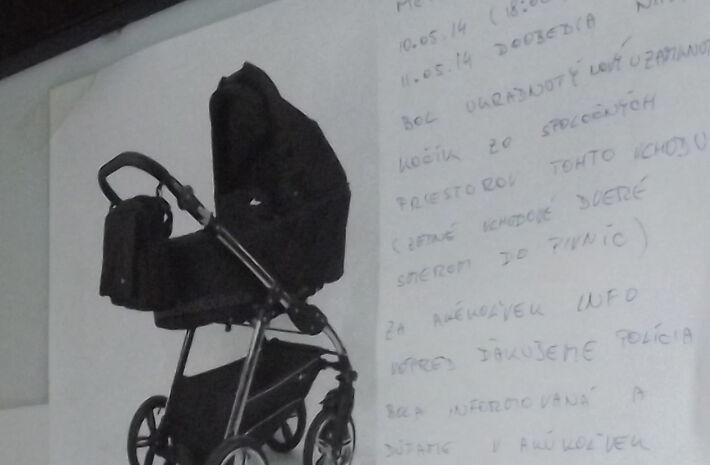 10.05.14 (18:00
11.05.14 DOOBEDIA
BOL UKRADNUTÝ NOVÝ UZAMKNUT
KOČÍK ZO SPOLOČNÝCH
PRIESTOROV TOHTO VCHODU
(ZADNÉ VCHODOVÉ DVERÉ
SMEROM DO PIVNÍC)
ZA AKÉKOĽVEK INFO
VOPRED ĎAKUJEME POLÍCIA
BOLA INFORMOVANÁ A
DÚFAME V AKÉKOĽVEK